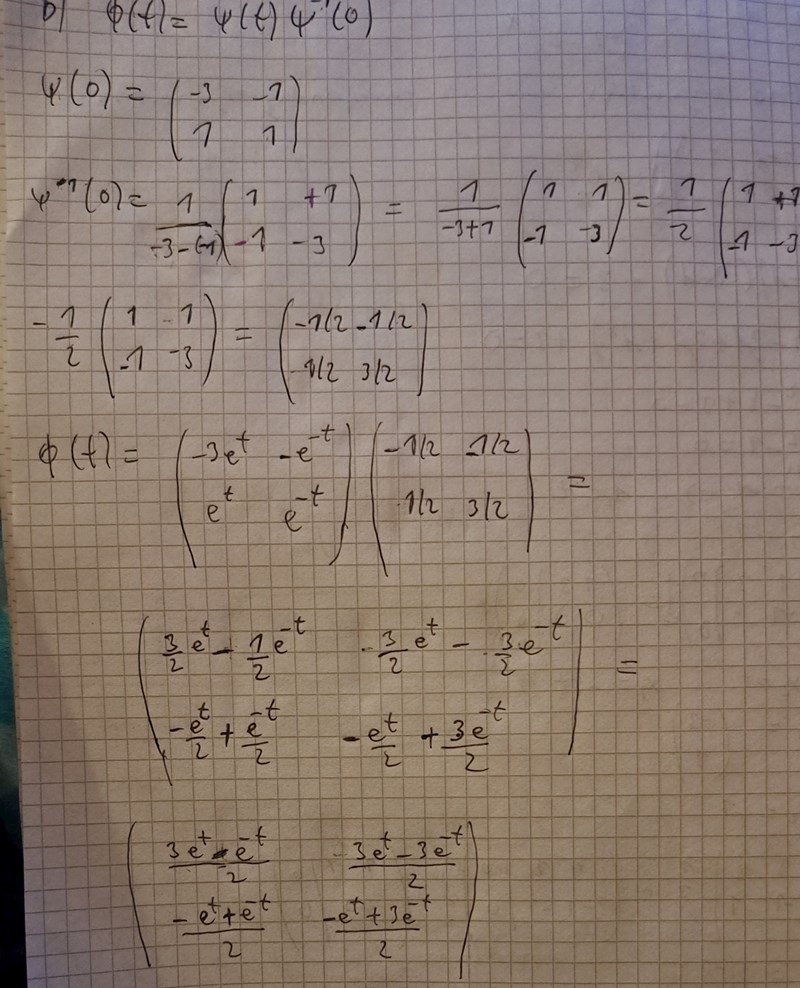 b) ϕ(t) = ψ(t) ψ⁻¹(0)
ψ(0) = ( -3 -1
1 1 )
ψ⁻¹(0) = 1/(-3-(-1)) ( 1 +1 ; -1 -3 ) = 1/(-3+1) ( 1 1 ; -1 -3 ) = 1/2 ( 1 +1 ; -1 -3
-1/2 ( 1 1 ; -1 -3 ) = ( -1/2 -1/2 ; -1/2 3/2 )
ϕ(t) = ( -3e^t -e^-t ; e^t e^-t ) ( -1/2 -1/2 ; 1/2 3/2 ) =
( 3/2 e^t - 1/2 e^-t -3/2 e^t - 3/2 e^-t ; -e^t/2 + e^-t/2 -e^t/2 + 3e^-t/2 ) =
( (3e^t - e^-t)/2 (3e^t - 3e^-t)/2 ; (-e^t + e^-t)/2 (-e^t + 3e^-t)/2 )